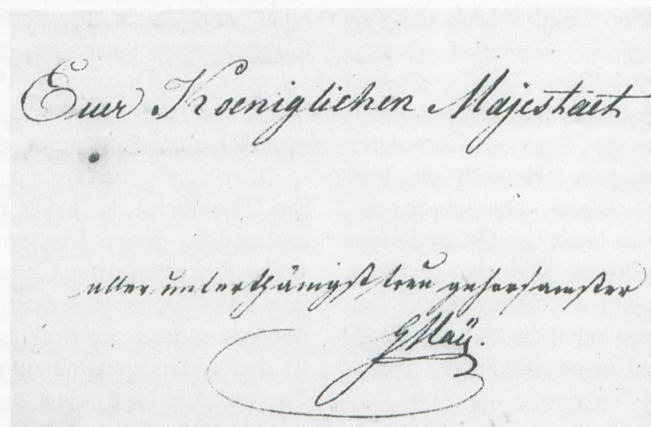 Euer Koeniglichen Majestaet
aller unterthänigst treu gehorsamster